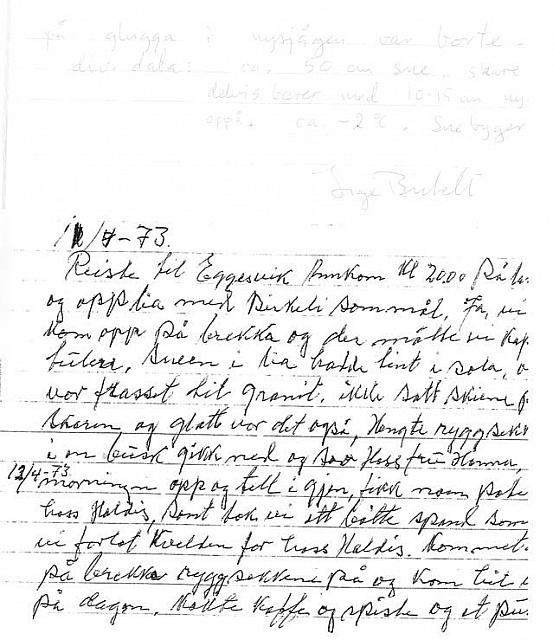 på glugga i nysjågen var borte.
div. data: ca. 50 cm snø, skare
delvis bærer med 10-15 cm ny
oppå. ca. -2°C. Snøbyger
Inge
11/4-73.
Reiste til Eggesvik Annkom kl 20.00 på
og opp lia med Birkeli som mål, Ja, vi
kom opp på brekka og der møtte vi
sneen i lia hadde tint i sola,
var til granit, ikke satt skiene
skaren og glatt var det også, Hengte ryggsekk
i en busk gikk ned og sov Hoss fru Hanna,
12/4-73
morningen opp og till i gjen, fikk noen
hoss Haldis, samt tok vi ett bøtte spand som
vi forlot Kvelden før hoss Haldis. Kommet
på brekka ryggsekkene på og kom hit
på dagen, Kokte Kaffe og spiste og et